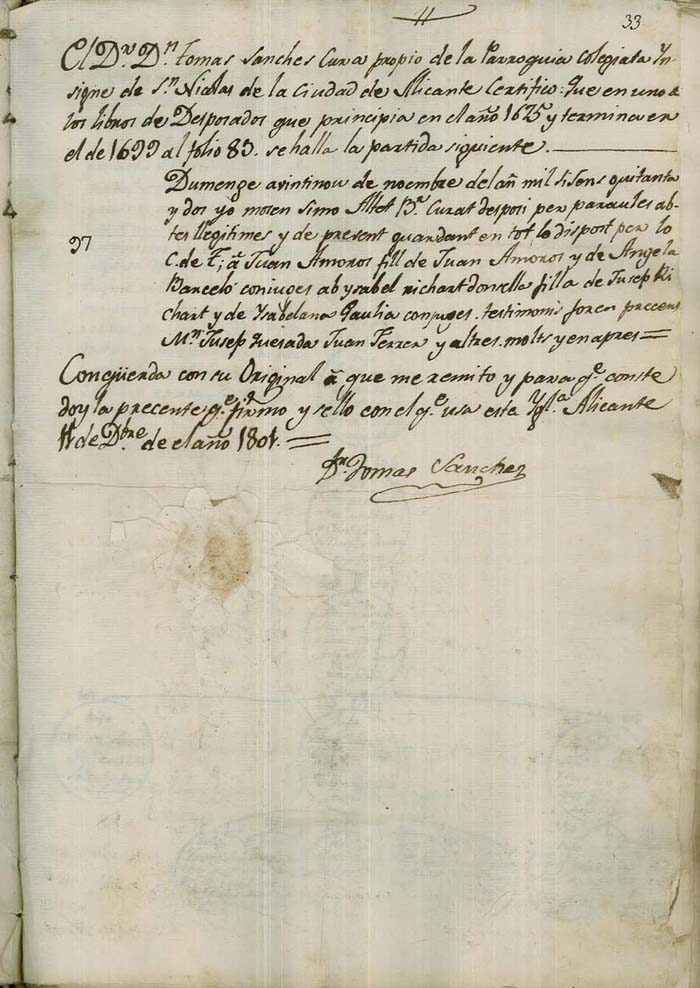 33
El Dr. Dn. Tomas Sanches Cura propio de la Parroquia Colegiata Yn-
signe de Sn. Nicolas de la Ciudad de Alicante Certifico: Que en uno de
los libros de Desposados que principia en el año 1625 y termina en
el de 1699 al folio 83. se halla la partida siguiente.
Dumenge a vintinou de noembre del añ mil sisens quitanta
y dos yo mosen simo Altet Pre. Curat desposi per paraules ab-
tes llegitimes y de present guardant en tot lo dispost per lo
97
C. de T; á Juan Amoros fill de Juan Amoros y de Angela
Barcelo coniuges ab ysabel richart donsella filla de Jusep Ri-
chart y de Ysabelana Paulia conjuges. testimonis foren precens
Mn. Jusep Quesada Juan Ferrer y altres molts y en apres
Concüerda con su Original á que me remito y para qe. conste
doy la precente qe. firmo y sello con el qe. usa esta Yglª. Alicante
11 de Dbre. de el año 1801.
Dr. Tomas Sanchez